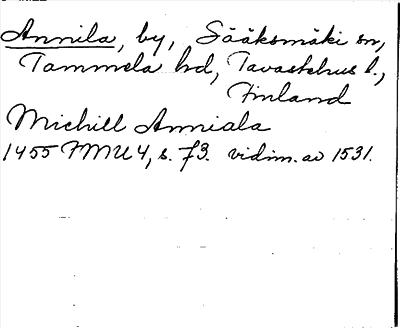 Annila, by, Sääksmäki sn,
Tammela hd, Tavastehus l.,
Finland
Michill Anniala
1455 FMU 4, s. 73. vidim. av 1531.